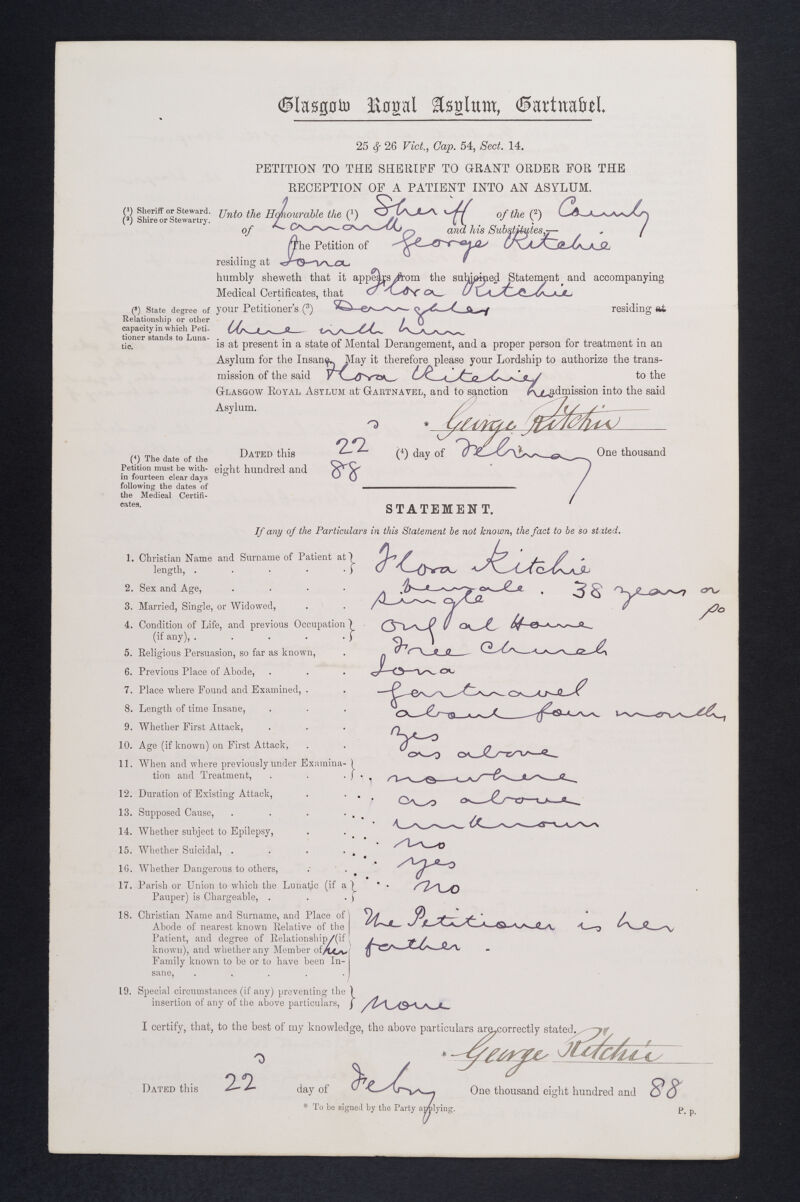 Glasgow Royal Asylum, Gartnabel.
25 & 26 Vict., Cap. 54, Sect. 14.
PETITION TO THE SHERIFF TO GRANT ORDER FOR THE
RECEPTION OF A PATIENT INTO AN ASYLUM.
(¹) Sheriff or Steward.
(²) Shire or Stewartry.
Unto the Honourable the (¹) Sheriff of the (²) County
of Lanark and his Substitutes,—
The Petition of George Ritchie
residing at Iona
humbly sheweth that it appears from the subjoined Statement and accompanying
Medical Certificates, that Flora Ritchie
(³) State degree of
Relationship or other
capacity in which Peti-
tioner stands to Luna-
tic.
your Petitioner's (³) Daughter residing at
there with him
is at present in a state of Mental Derangement, and a proper person for treatment in an
Asylum for the Insane. May it therefore please your Lordship to authorize the trans-
mission of the said Flora Ritchie to the
GLASGOW ROYAL ASYLUM at GARTNAVEL, and to sanction her admission into the said
Asylum.
* George Ritchie
(⁴) The date of the
Petition must be with-
in fourteen clear days
following the dates of
the Medical Certifi-
cates.
DATED this 22 (⁴) day of February One thousand
eight hundred and 88
STATEMENT.
If any of the Particulars in this Statement be not known, the fact to be so stated.
1. Christian Name and Surname of Patient at
length, . Flora Ritchie
2. Sex and Age, female. 38 years or so
3. Married, Single, or Widowed, single
4. Condition of Life, and previous Occupation
(if any), . only at Home
5. Religious Persuasion, so far as known, Free Church
6. Previous Place of Abode, Iona
7. Place where Found and Examined, Gartnavel
8. Length of time Insane, about four months
9. Whether First Attack, yes
10. Age (if known) on First Attack, as above
11. When and where previously under Examina-
tion and Treatment, nowhere
12. Duration of Existing Attack, as above
13. Supposed Cause, unknown
14. Whether subject to Epilepsy, no
15. Whether Suicidal, yes
16. Whether Dangerous to others,
17. Parish or Union to which the Lunatic (if a
Pauper) is Chargeable, no
18. Christian Name and Surname, and Place of
Abode of nearest known Relative of the
Patient, and degree of Relationship (if
known), and whether any Member of her
Family known to be or to have been In-
sane, The Petitioner is her
father.
19. Special circumstances (if any) preventing the
insertion of any of the above particulars, None
I certify, that, to the best of my knowledge, the above particulars are correctly stated.
* George Ritchie
DATED this 22 day of Febry One thousand eight hundred and 88
* To be signed by the Party applying.
P. p.